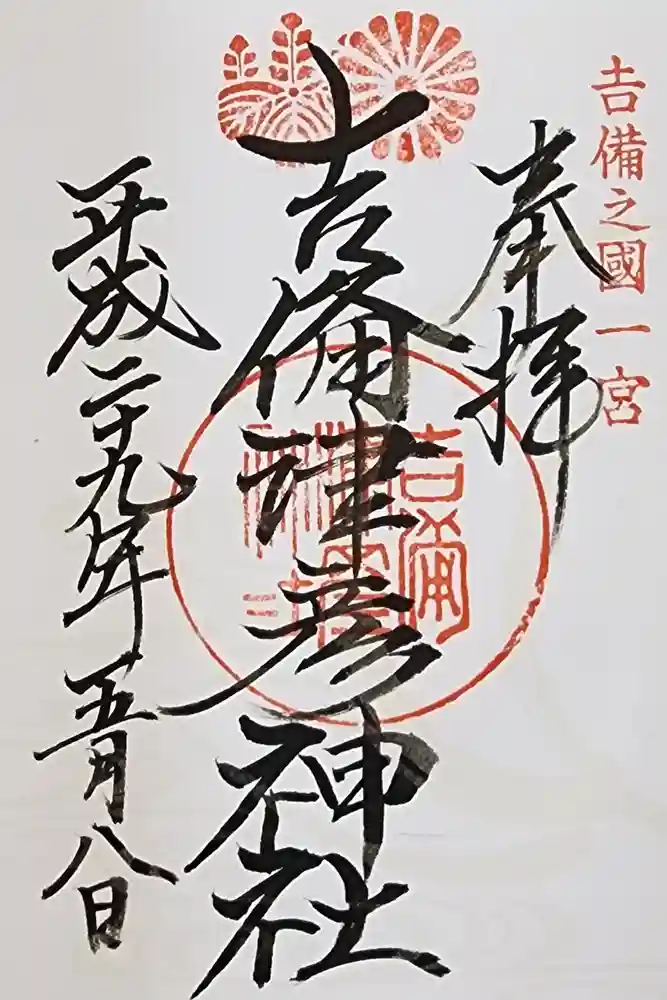 吉備之國一宮
奉拝
吉備津彦神社
吉備
津彦
神社
平成二十九年五月八日